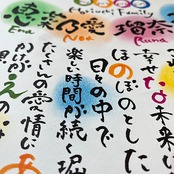 Horiuchi Family
恵 乃愛 瑠奈
Ena Noa Runa
幸せな未来
ほのぼのとした
日々の中で
楽しい時間が続く堀
たくさんの愛情に
かけがえの